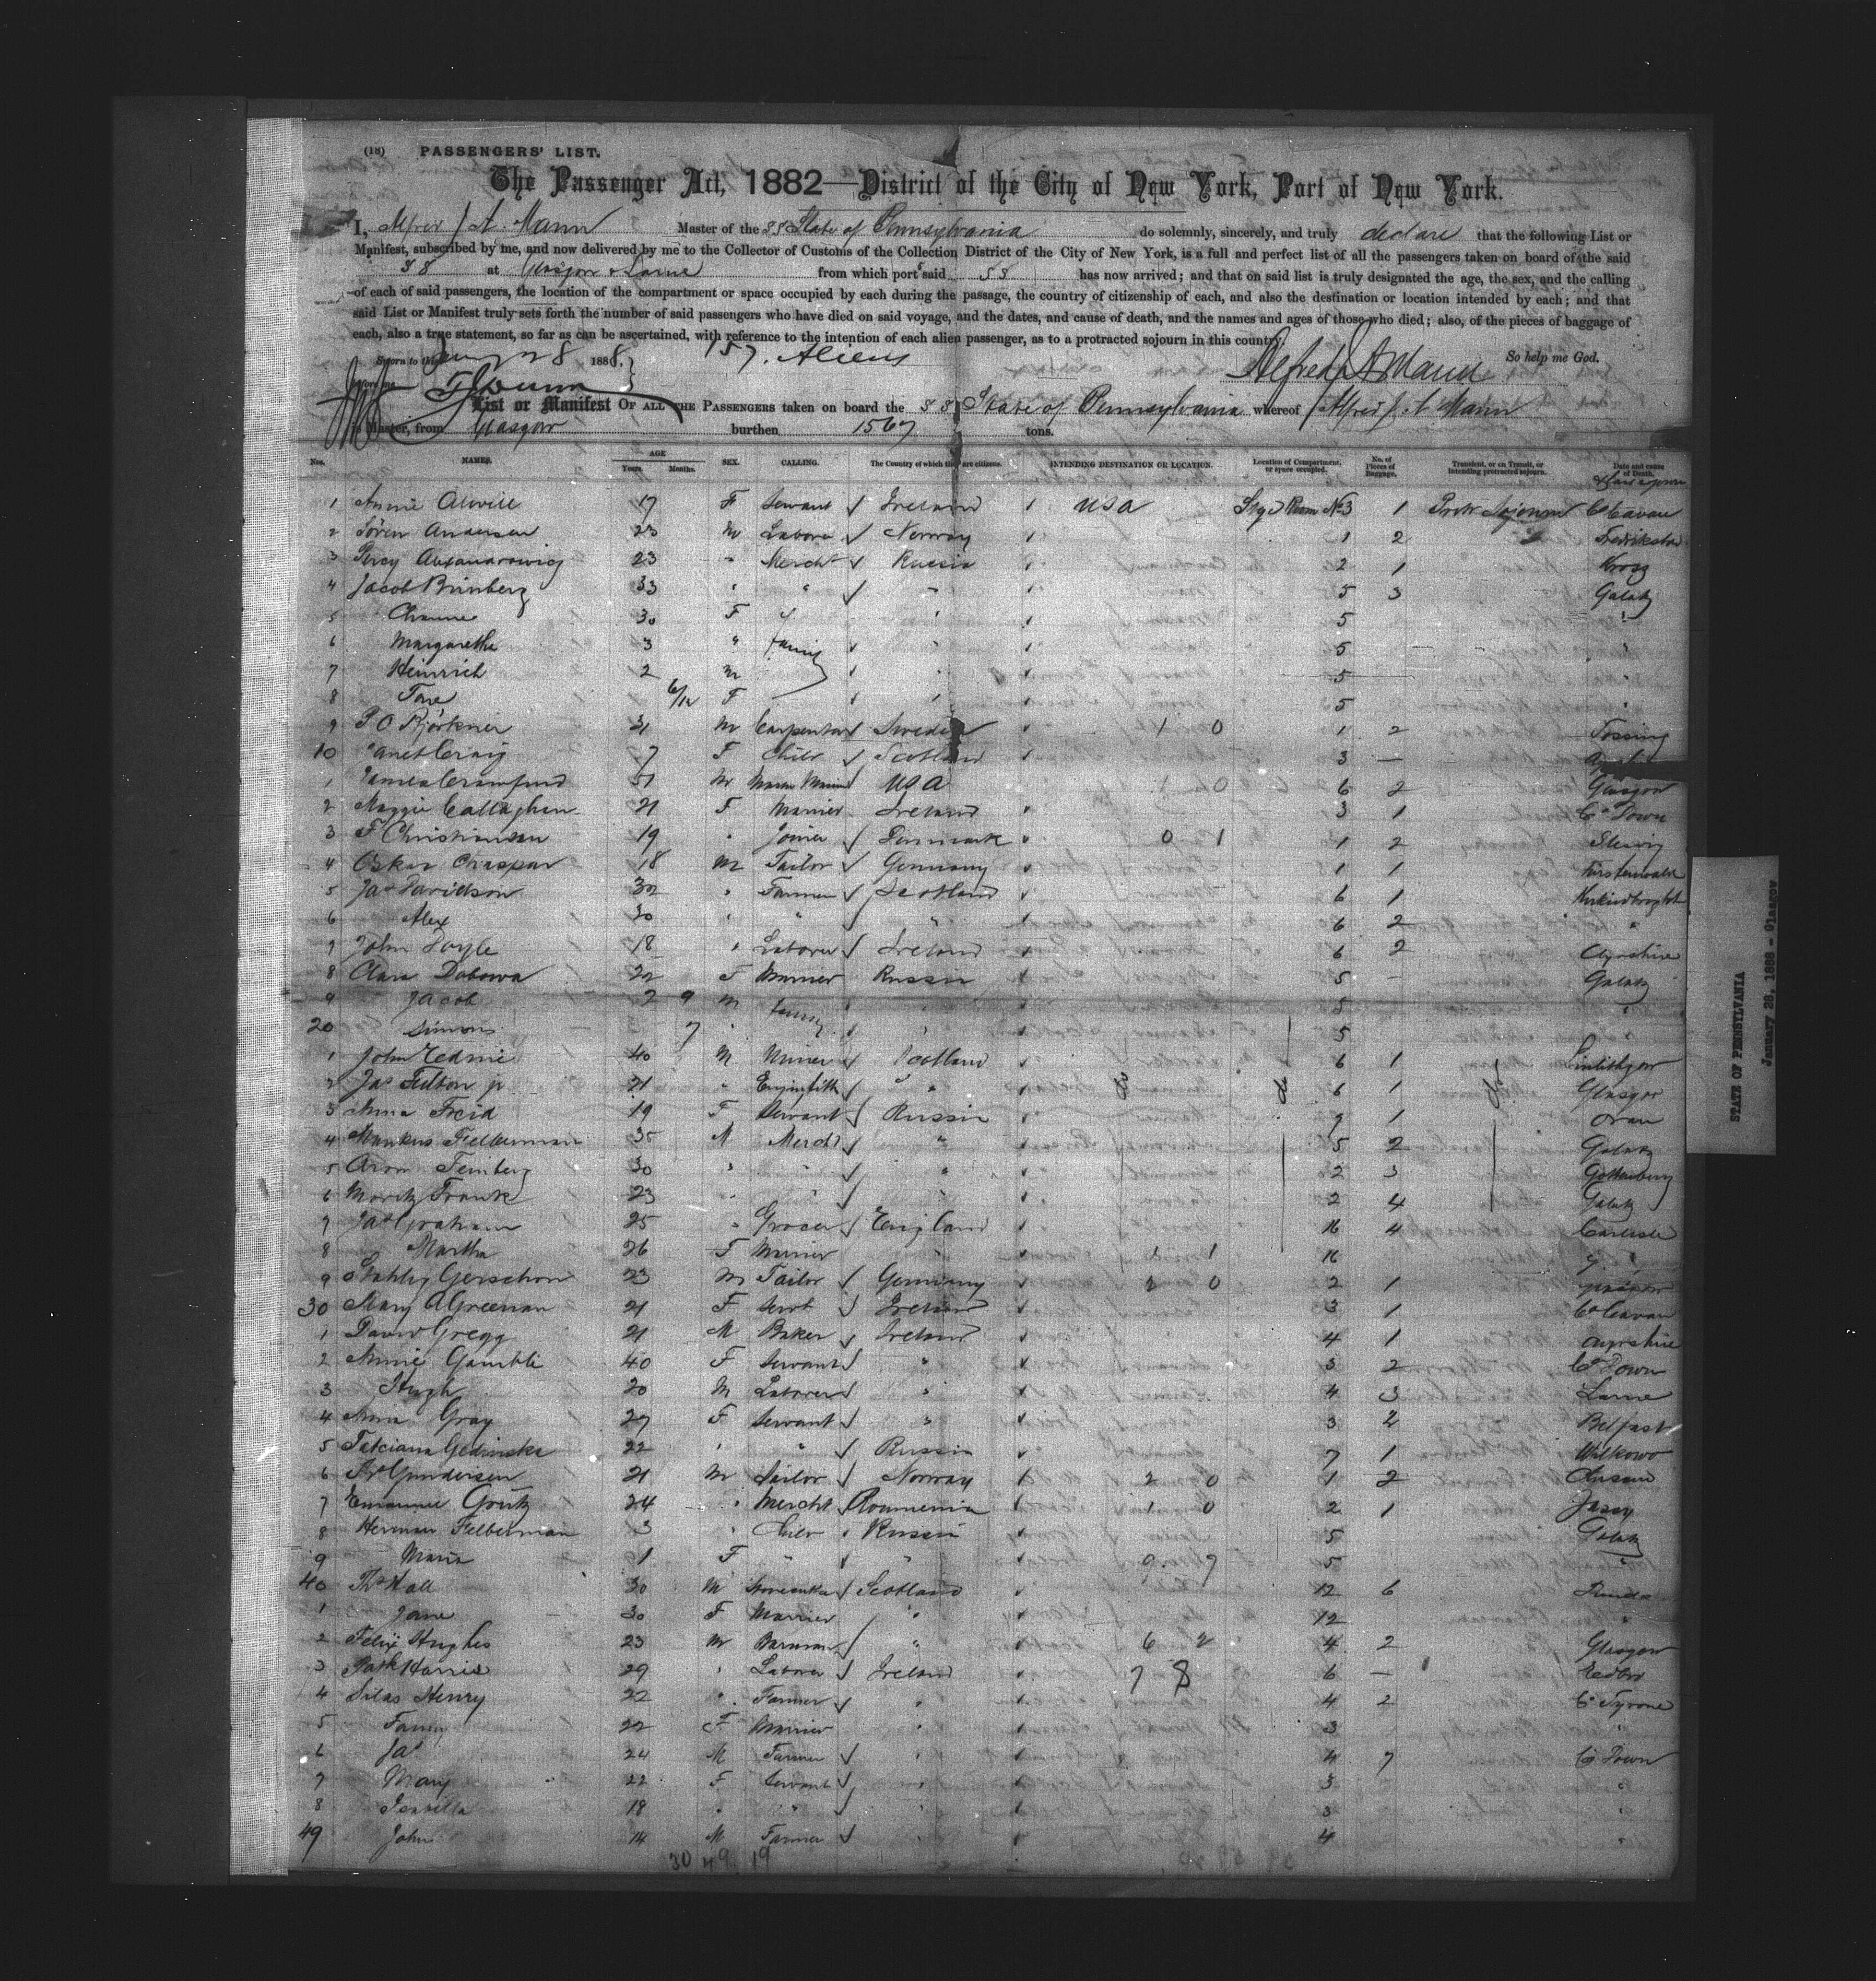 (18) PASSENGERS' LIST.
The Passenger Act, 1882—District of the City of New York, Port of New York.
I, Alfred J A Mann Master of the SS State of Pennsylvania do solemnly, sincerely, and truly declare that the following List or
Manifest, subscribed by me, and now delivered by me to the Collector of Customs of the Collection District of the City of New York, is a full and perfect list of all the passengers taken on board of the said
SS at Glasgow & Larne from which port said SS has now arrived; and that on said list is truly designated the age, the sex, and the calling
of each of said passengers, the location of the compartment or space occupied by each during the passage, the country of citizenship of each, and also the destination or location intended by each; and that
said List or Manifest truly sets forth the number of said passengers who have died on said voyage, and the dates, and cause of death, and the names and ages of those who died; also, of the pieces of baggage of
each, also a true statement, so far as can be ascertained, with reference to the intention of each alien passenger, as to a protracted sojourn in this country.
Sworn to this 28 1888. 157. Aliens Alfred J A Mann So help me God.
before me
List or Manifest OF ALL THE PASSENGERS taken on board the SS State of Pennsylvania whereof Alfred J A Mann
is Master, from Glasgow burthen 1567 tons.
Nos. NAMES. AGE Years. Months. SEX. CALLING. The Country of which they are citizens. INTENDING DESTINATION OR LOCATION. Location of Compartment, or space occupied. No. of Pieces of Baggage. Transient, or on Transit, or intending protracted sojourn. Date and cause of Death.
1 Annie 17 F Servant Ireland USA Stge Room No 3 1 Protr Sojourn Co Cavan
2 Sören Andersen 23 M Labore Norway 1 2 Fredrikstad
3 Percy 23 " Mercht Russia 2 1
4 Jacob Brinberg 33 " " " 5 3 Galatz
5 30 F " 5 "
6 Margaretha 3 " Family " 5 "
7 Heinrich 2 M " 5 "
8 6/12 F " 5 "
9 P O Björkner 31 M Carpenter Sweden 1 0 1 2
10 Janet Craig 7 F Child Scotland 3 —
1 James Crawford 51 M USA 1 0 6 2 Glasgow
2 Maggie Callaghan 21 F Married Ireland 3 1 Co Down
3 F Christiansen 19 " Joiner Denmark 0 1 1 2
4 Oskar 18 M Tailor Germany 1 1 Fürstenwalde
5 Jas Davidson 32 " Farmer Scotland 6 1
6 Alex 30 " " " 6 2 "
7 John Doyle 18 " Laborer Ireland 6 2 Ayrshire
8 Clara Dobowa 22 F Married Russia 5 - Galatz
9 Jacob 2 9 M Family " 5 "
20 Simon 7 " " 5 "
1 John 40 M Miner Scotland 6 1 Linlithgow
2 Jas Fulton jr 21 " " do do 6 1 do Glasgow
3 Anna Freid 19 F Servant Russia 7 1
4 Markus Felberman 35 M Mercht " 5 2 Galatz
5 Aron Feinberg 30 " " " 2 3 Gothenburg
6 Moritz Frank 23 " " " 2 4 Galatz
7 Jas Graham 25 " Grocer England 16 4 Carlisle
8 Martha 26 F Married " 1 1 16 "
9 Gerschon 23 M Tailor Germany 2 0 2 1 Glasgow
30 Mary A Greenan 21 F Servt Ireland 3 1 Co Cavan
1 David Gregg 21 M Baker Ireland 4 1 Ayrshire
2 Annie Gamble 40 F Servant " 3 2 Co Down
3 Hugh 20 M Laborer " 4 3 Larne
4 Anna Gray 27 F Servant " 3 2 Belfast
5 Tatciana Gedinska 22 " " Russia 7 1 Wilkowo
6 Gundersen 21 M Sailor Norway 2 0 1 2
7 Emanuel 24 " Mercht Roumenia 1 0 2 1 Jassy
8 Herman Felberman 3 " Child Russia 5 Galatz
9 Maria 1 F " " 9 7 5 "
40 Thos Hall 30 M Scotland 12 6
1 Jane 30 F Married " 12 "
2 Felix Hughes 23 M Barman " 6 2 4 2 Glasgow
3 Patk Harris 29 " Laborer Ireland 7 8 6 —
4 Silas Henry 22 " Farmer " 4 2 Co Tyrone
5 Fanny 22 F Married " 3 "
6 Jas 24 M Farmer " 4 7 Co Down
7 Mary 22 F Servant " 3 "
8 Isabella 18 " " " 3 "
49 John 14 M Farmer " 4 "
30 49 19
STATE OF PENNSYLVANIA
January 28, 1888 - Glasgow